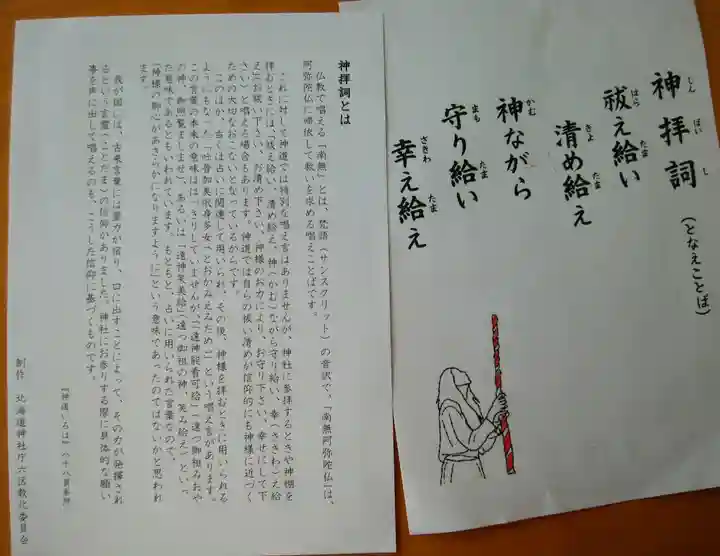 神拝詞とは
仏教で唱える「南無」とは、梵語(サンスクリット)の音訳で、「南無阿弥陀仏」は、
阿弥陀仏に帰依して救いを求める唱えことばです。
これに対して神道では特別な唱え言はありませんが、神社に参拝するときや神棚を
拝むときには「祓え給い、清め給え、神(かむ)ながら守り給い、幸(さきわ)え給
え」(お祓い下さい、お清め下さい、神様のお力により、お守り下さい、幸せにして下
さい)と唱える場合もあります。神道では自らの祓い清めが信仰的にも神様に近づく
ための大切なおこないとなっているからです。
このほか、古くは占いに関連して用いられ、その後、神様を拝むときに用いられる
ようにもなった「吐普加美依身多女(とおかみえみため)」という唱え言があります。
この言葉の本来の意味ははっきりしていませんが、「遠神能看可給」(遠つ御祖みおや
の神、御照覧ましませ)、あるいは「遠神笑美給」(遠つ御祖の神、笑み給え)といっ
た意味であるともいわれています。もともと、占いに用いられた言葉なので、
「神様の御心があきらかになりますよう」という意味であったのではないかと思われ
ます。
我が国には、古来言葉には霊力が宿り、口に出すことによって、その力が発揮され
るという言霊(ことだま)の信仰がありました。神社にお参りする際に具体的な願い
事を声に出して唱えるのも、こうした信仰に基づくものです。
『神道いろは』八十八頁参照
制作 北海道神社庁六区教化委員会
神拝詞(となえことば)
しんぱいし
祓え給い
はら たま
清め給え
きよ たま
神ながら
かむ
守り給い
まも たま
幸え給え
さきわ たま